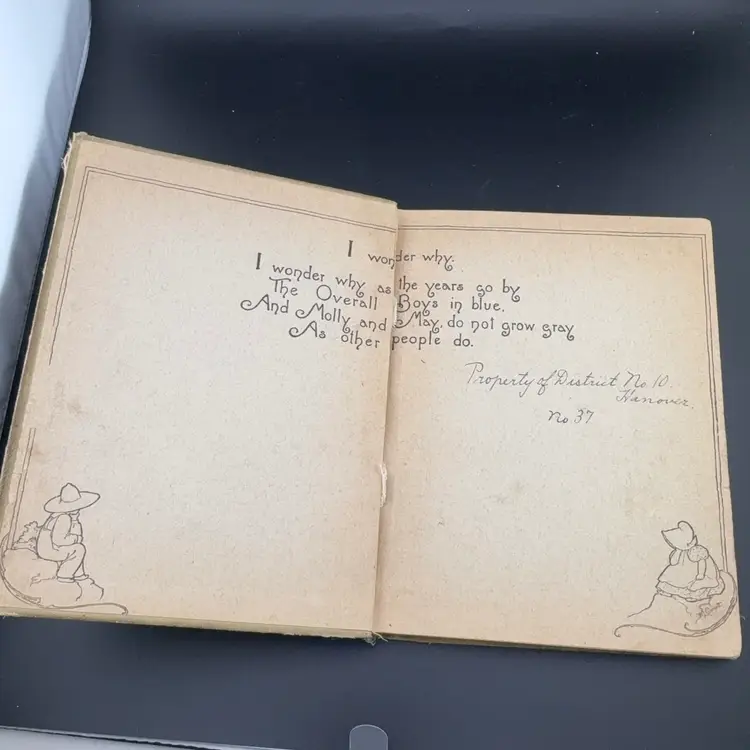 I wonder why.
I wonder why as the years go by
The Overall Boys in blue,
And Molly and May, do not grow gray
As other people do.
Property of District No. 10.
Hanover.
No. 37